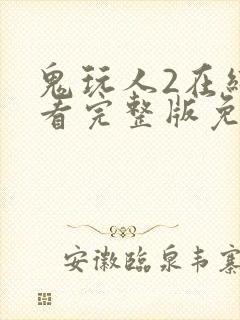 鬼玩人2在线
看完整版免
安徽临泉韦寨